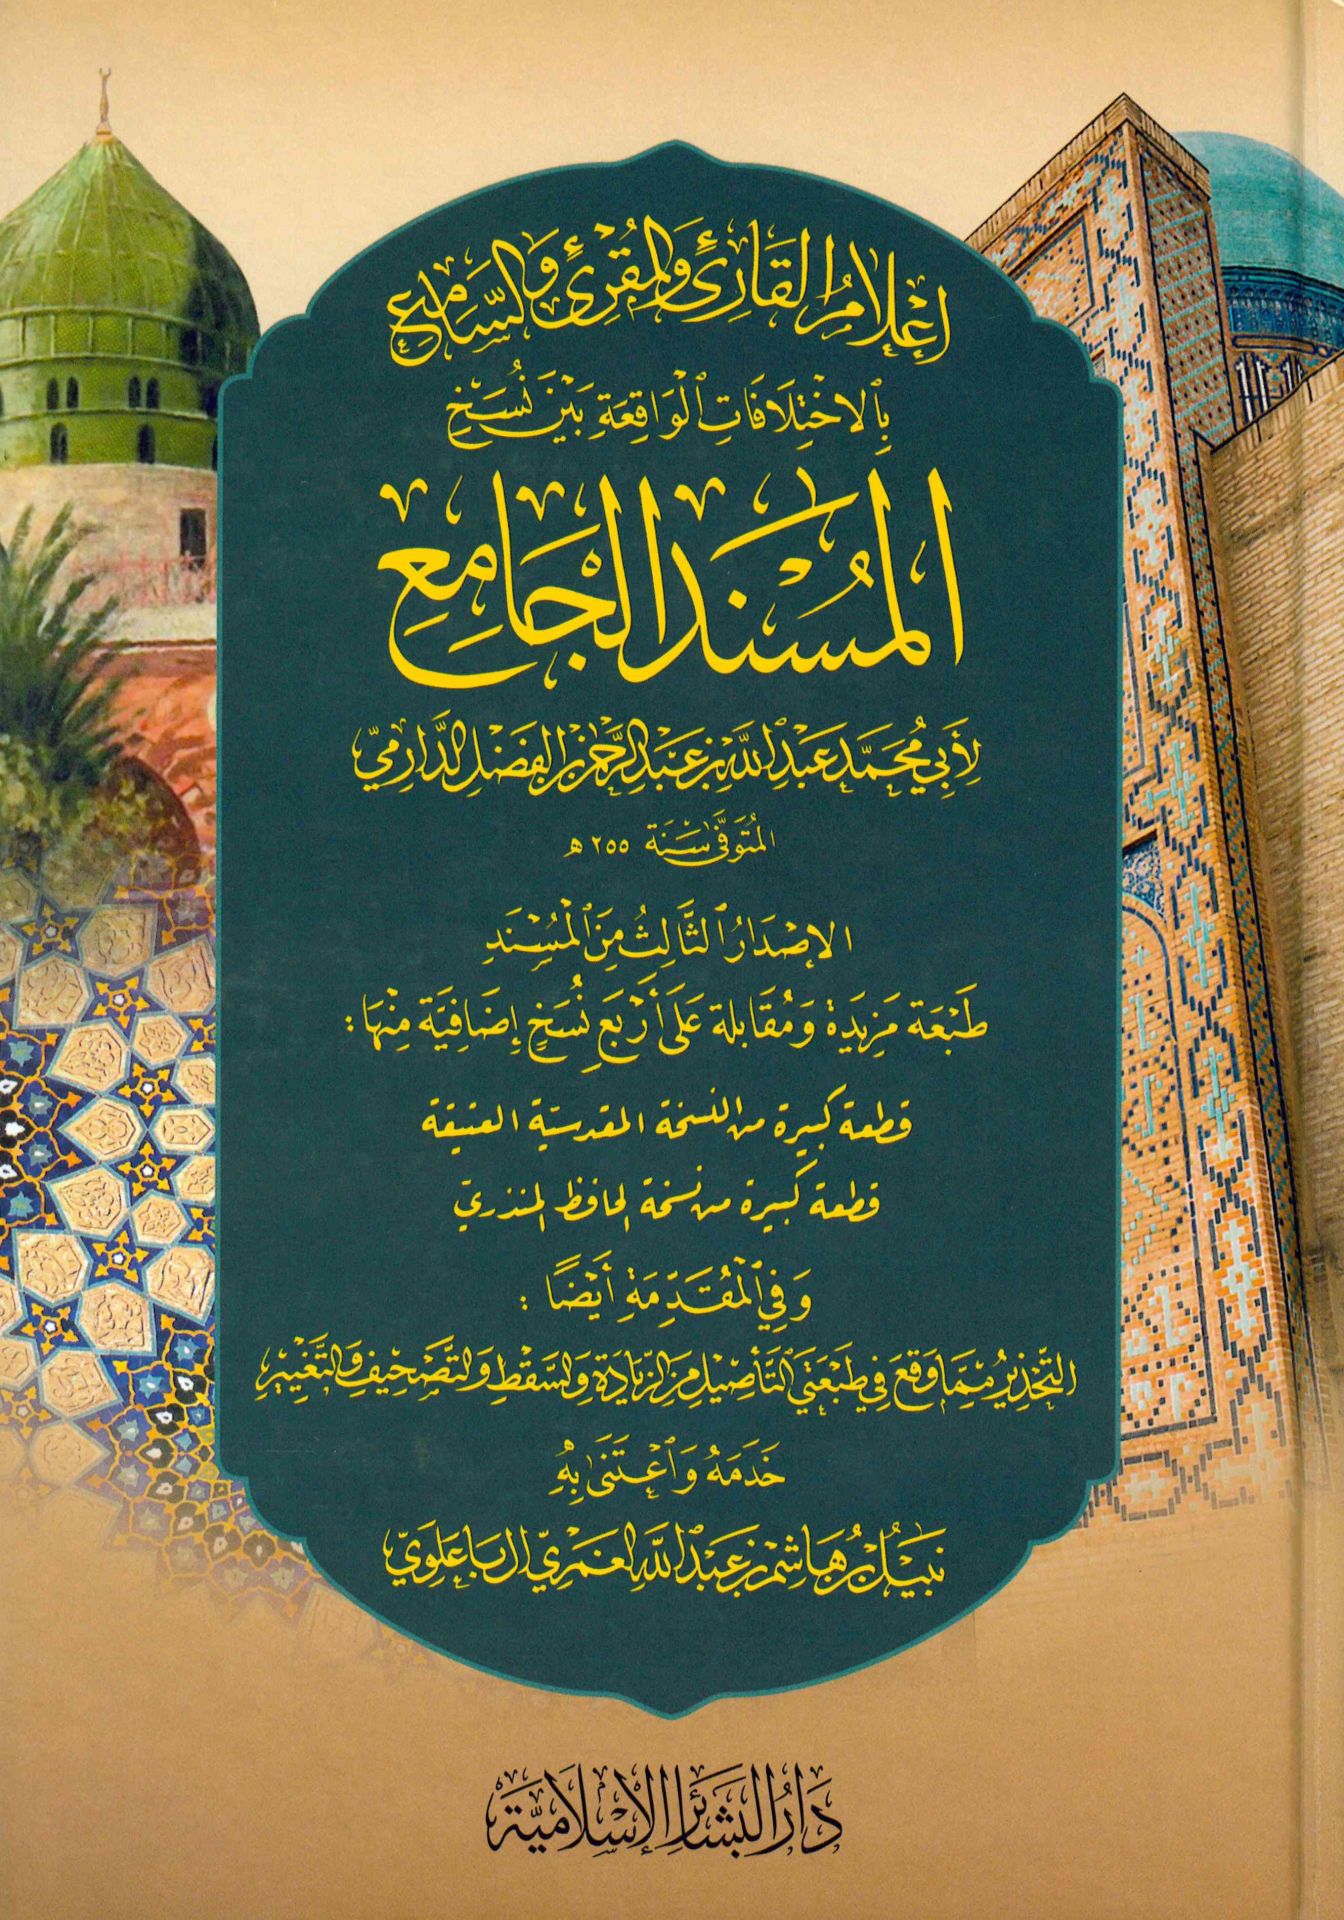 إِعْلَامُ القَارِئِ وَالمُقْرِئِ وَالسَّامِعِ
بِالِاخْتِلَافَاتِ الْوَاقِعَةِ بَيْنَ نُسَخِ
المُسْنَد الجَامِعِ
لِأَبِي مُحَمَّد عَبْدِ اللَّهِ بْنِ عَبْدِ الرَّحْمٰنِ بْنِ الفَضْلِ الدَّارِمِيِّ
المُتَوَفَّى سَنَة ٢٥٥ هـ
الإِصْدَارُ الثَّالِثُ مِنَ الْمُسْنَدِ
طَبْعَة مَزِيدَة وَمُقَابلة عَلَى أَرْبَعِ نُسَخٍ إِضَافِيَّة مِنْهَا:
قطعة كبيرة من النسخة المقدسيّة العتيقة
قطعة كبيرة من نسخة الحافظ المنذريّ
وَفِي الْمُقَدِّمَةِ أَيْضًا:
التَّحْذِيرُ مِمَّا وَقَعَ فِي طَبْعَتَيِ التَّأْصِيلِ مِنَ الزِّيَادَةِ وَالسَّقْطِ وَالتَّصْحِيفِ وَالتَّغْيِيرِ
خَدَمَهُ وَاعْتَنَى بِهِ
نَبِيْلُ بْنُ هَاشِم بْنِ عَبْدِ اللَّهِ الغَمْرِيّ آل بَاعَلَوِيّ
دَارُ الْبَشَائِرِ الإِسْلَامِيَّة